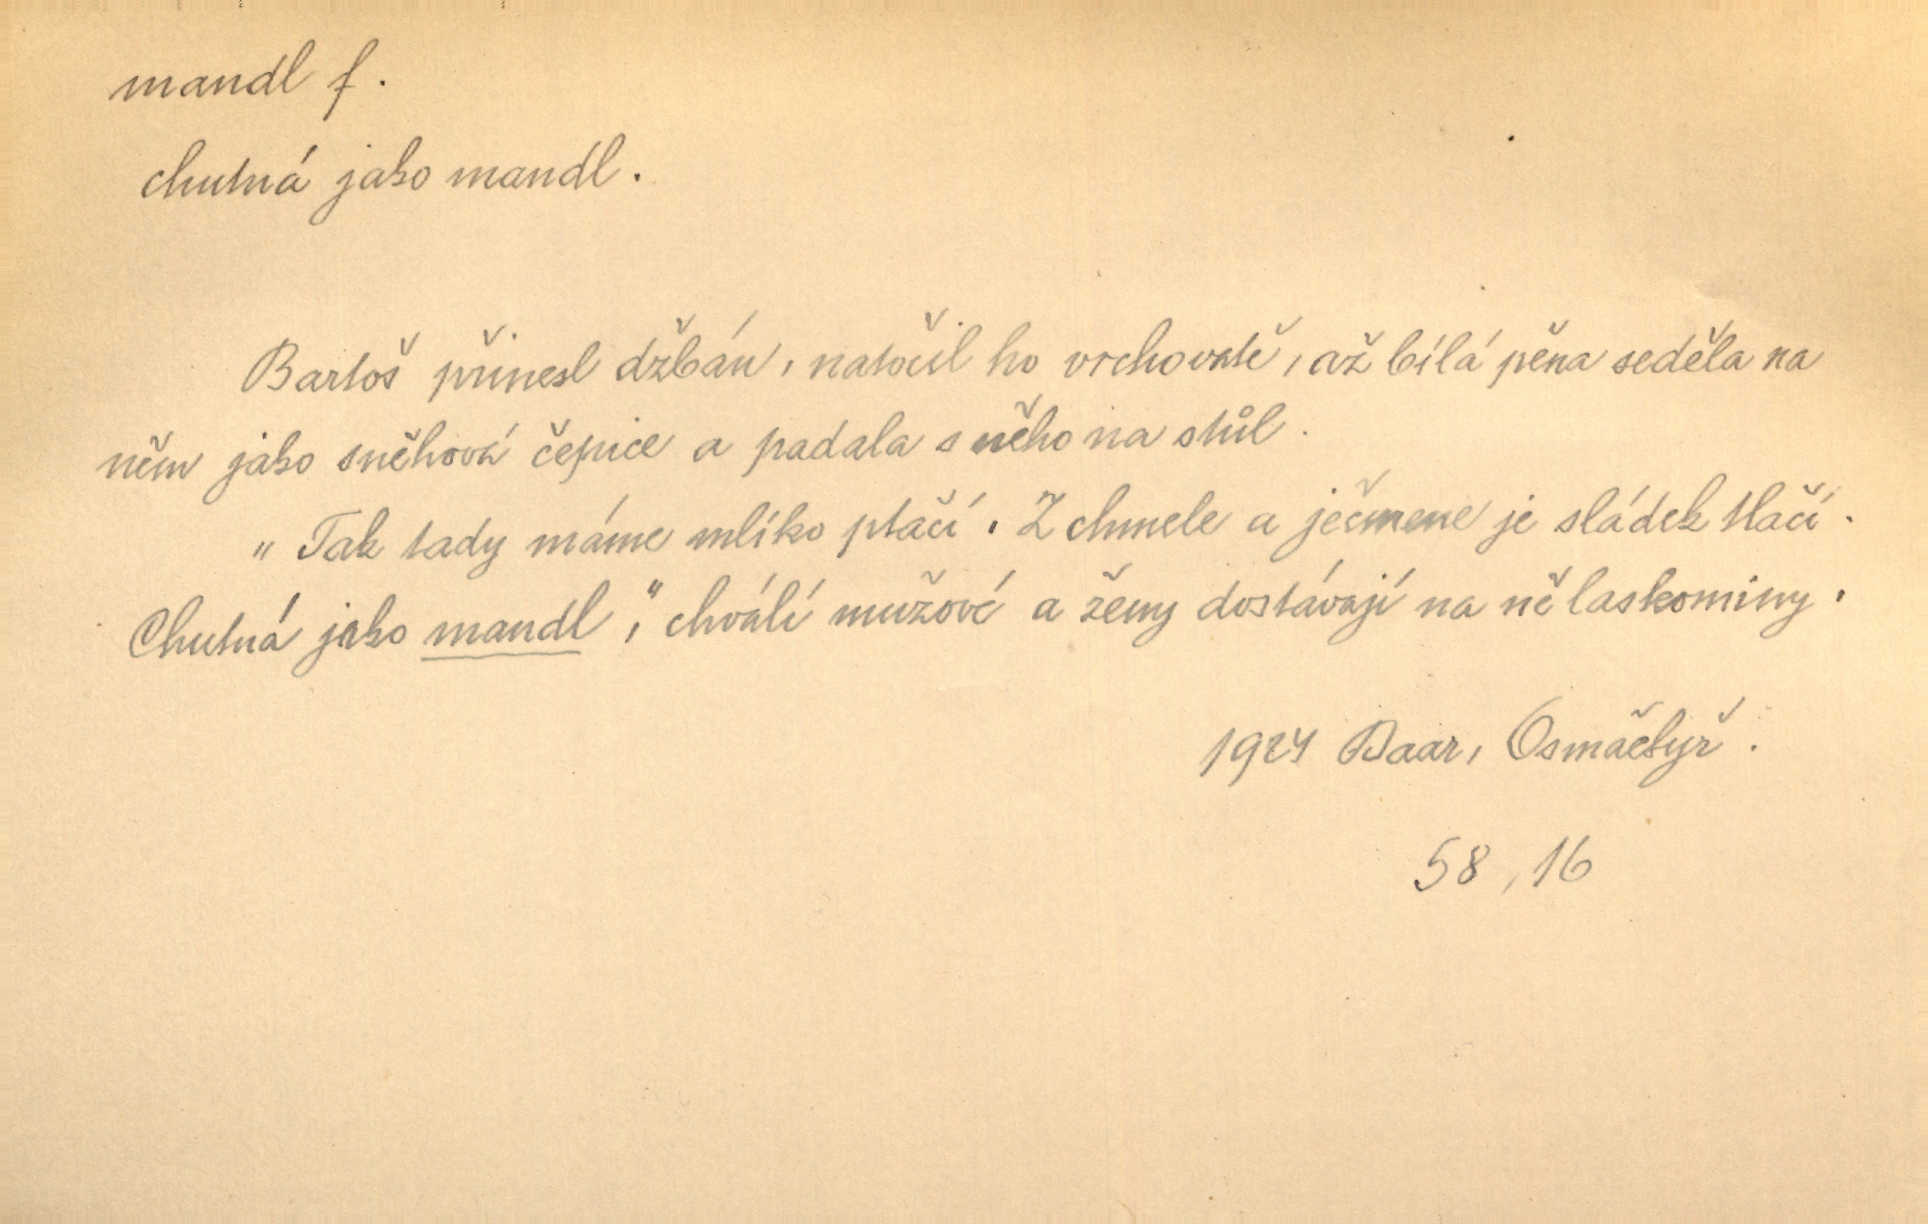 mandl f.
chutná jako mandl.
Bartoš přinesl džbán, natočil ho vrchovatě, až bílá pěna seděla na
něm jako sněhová čepice a padala s něho na stůl.
"Tak tady máme mlíko ptačí. Z chmele a ječmene je sládek tlačí.
Chutná jako mandl," chválí mužové a ženy dostávají na ně laskominy.
1924 Baar, Osmačtyř.
58, 16